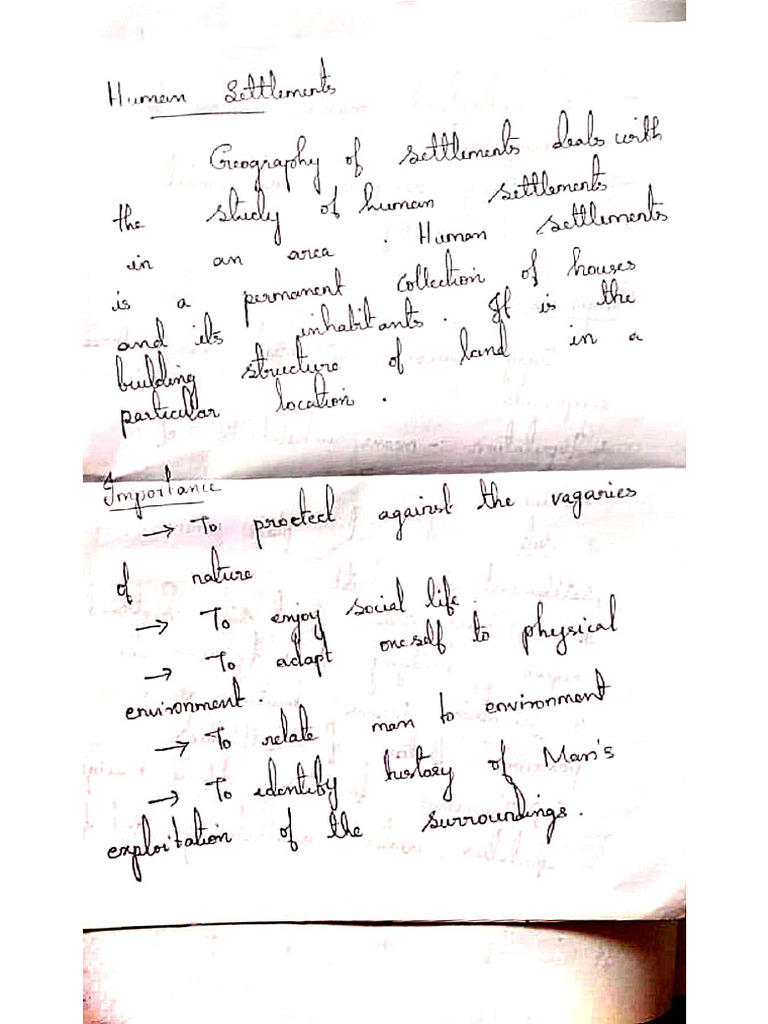 Human Settlements
Geography of settlements deals with
the study of human settlements
in an area. Human settlements
is a permanent collection of houses
and its inhabitants. It is the
building structure of land in a
particular location.
Importance
→ To proctect against the vagaries
of nature
→ To enjoy social life.
→ To adapt oneself to physical
environment.
→ To relate man to environment
→ To identify history of Man's
exploitation of the surroundings.